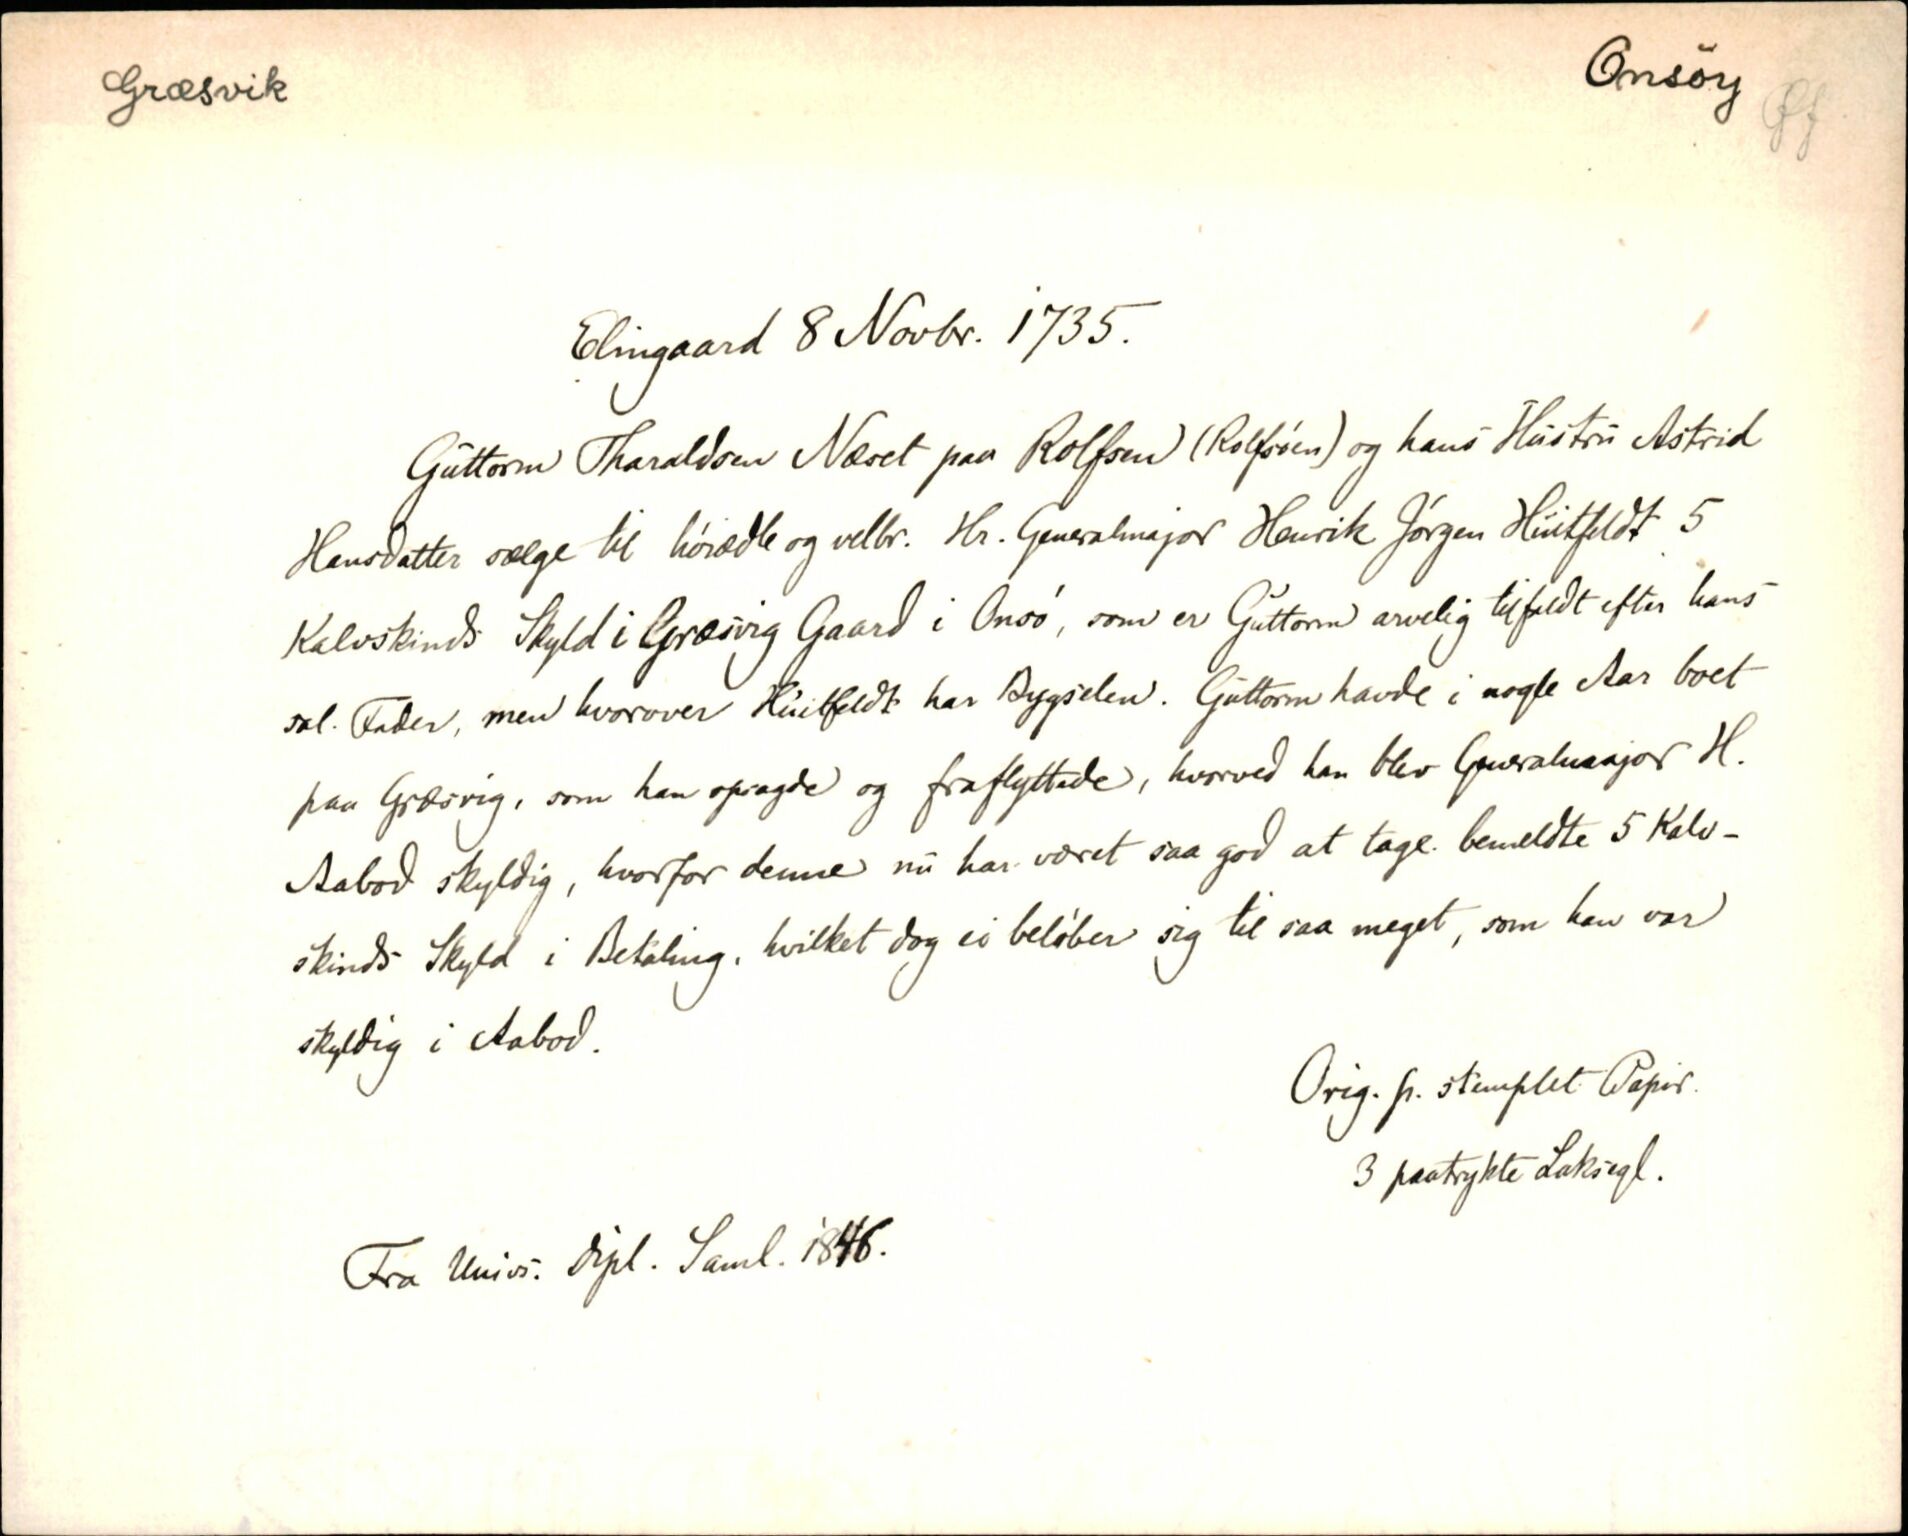 Græsvik
Onsöy
Øf
Elingaard 8 Novbr. 1735.
Guttorm Tharaldsen Næset paa Rolfsen (Rolfsöen) og hans Hustru Astrid
Hansdatter sælge til höiædle og velbr. Hr. Generalmajor Henrik Jörgen Huitfeldt 5
Kalvskinds Skyld i Græsvig Gaard i Onsö, som er Guttorm arvelig tilfaldt efter hans
sal. Fader, men hvorover Huitfeldt har Bygselen. Guttorm havde i nogle Aar boet
paa Græsvig, som han opsagde og fraflyttede, hvorved han blev Generalmajor H.
Aabod skyldig, hvorfor denne nu har været saa god at tage bemeldte 5 Kalv-
skinds Skyld i Betaling, hvilket dog ei belöber sig til saa meget, som han var
skyldig i Aabod.
Orig. p. stemplet Papir.
3 paatrykte Laksegl.
Fra Univs. Dipl. Saml. 1846.